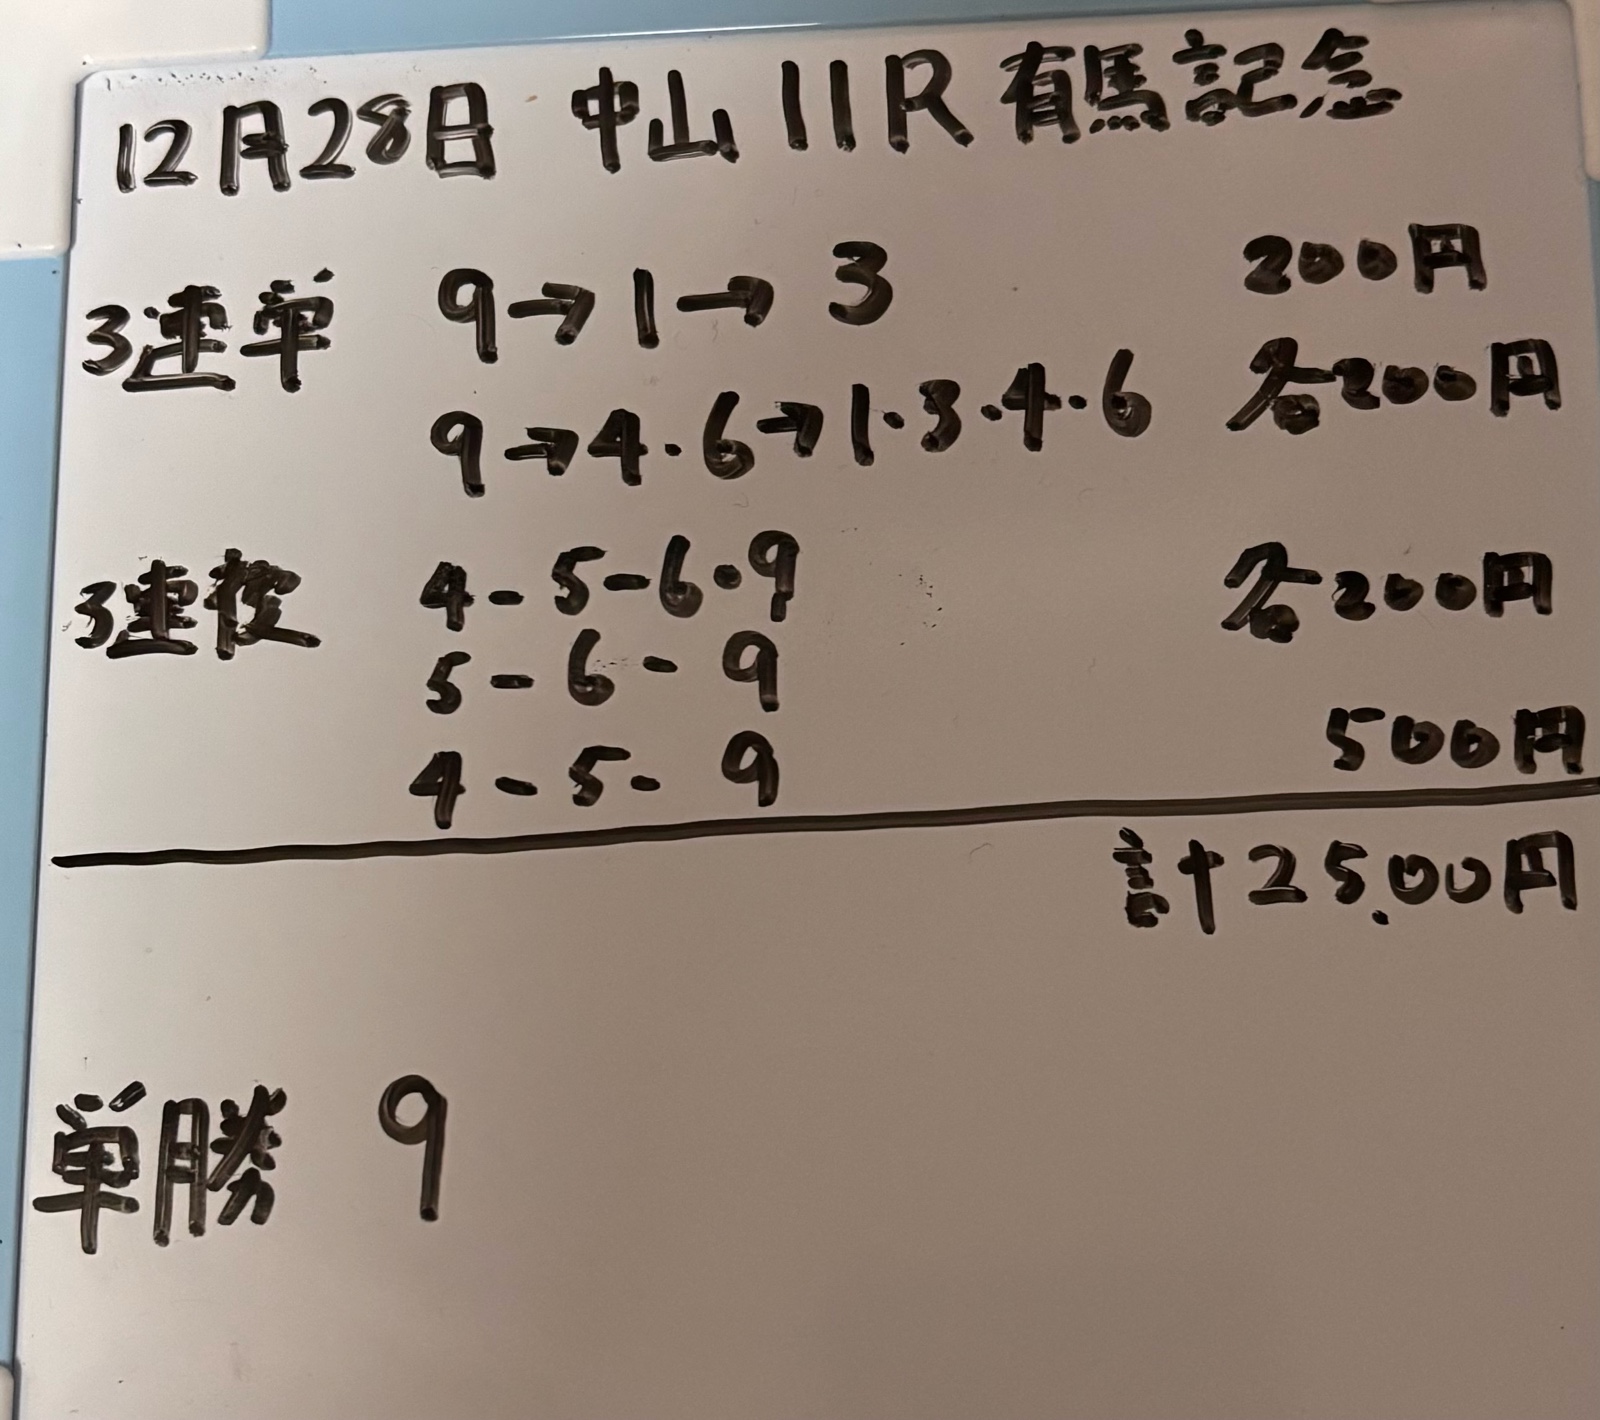 12月28日 中山 11R 有馬記念
3連単 9→1→3 200円
9→4.6→1.3.4.6 各200円
3連複 4-5-6.9 各200円
5-6-9
4-5-9 500円
計2500円
単勝 9